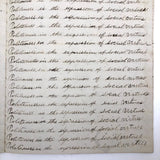 Politeness is the expression of social virtues
Politeness is the expression of social virtues
Politeness is the expression of social virtues
Politeness is the expression of social virtues
Politeness is the expression of social virtues
Politeness is the expression of social virtues
Politeness is the expression of social virtues
Politeness is the expression of social virtues
Politeness is the expression of social virtues
Politeness is the expression of social virtues
Politeness is the expression of social virtues
Politeness is the expression of social virtues
Politeness is the expression of social virtues
Politeness is the expression of social virtues
Politeness is the expression of social virtues
Politeness is the expression of